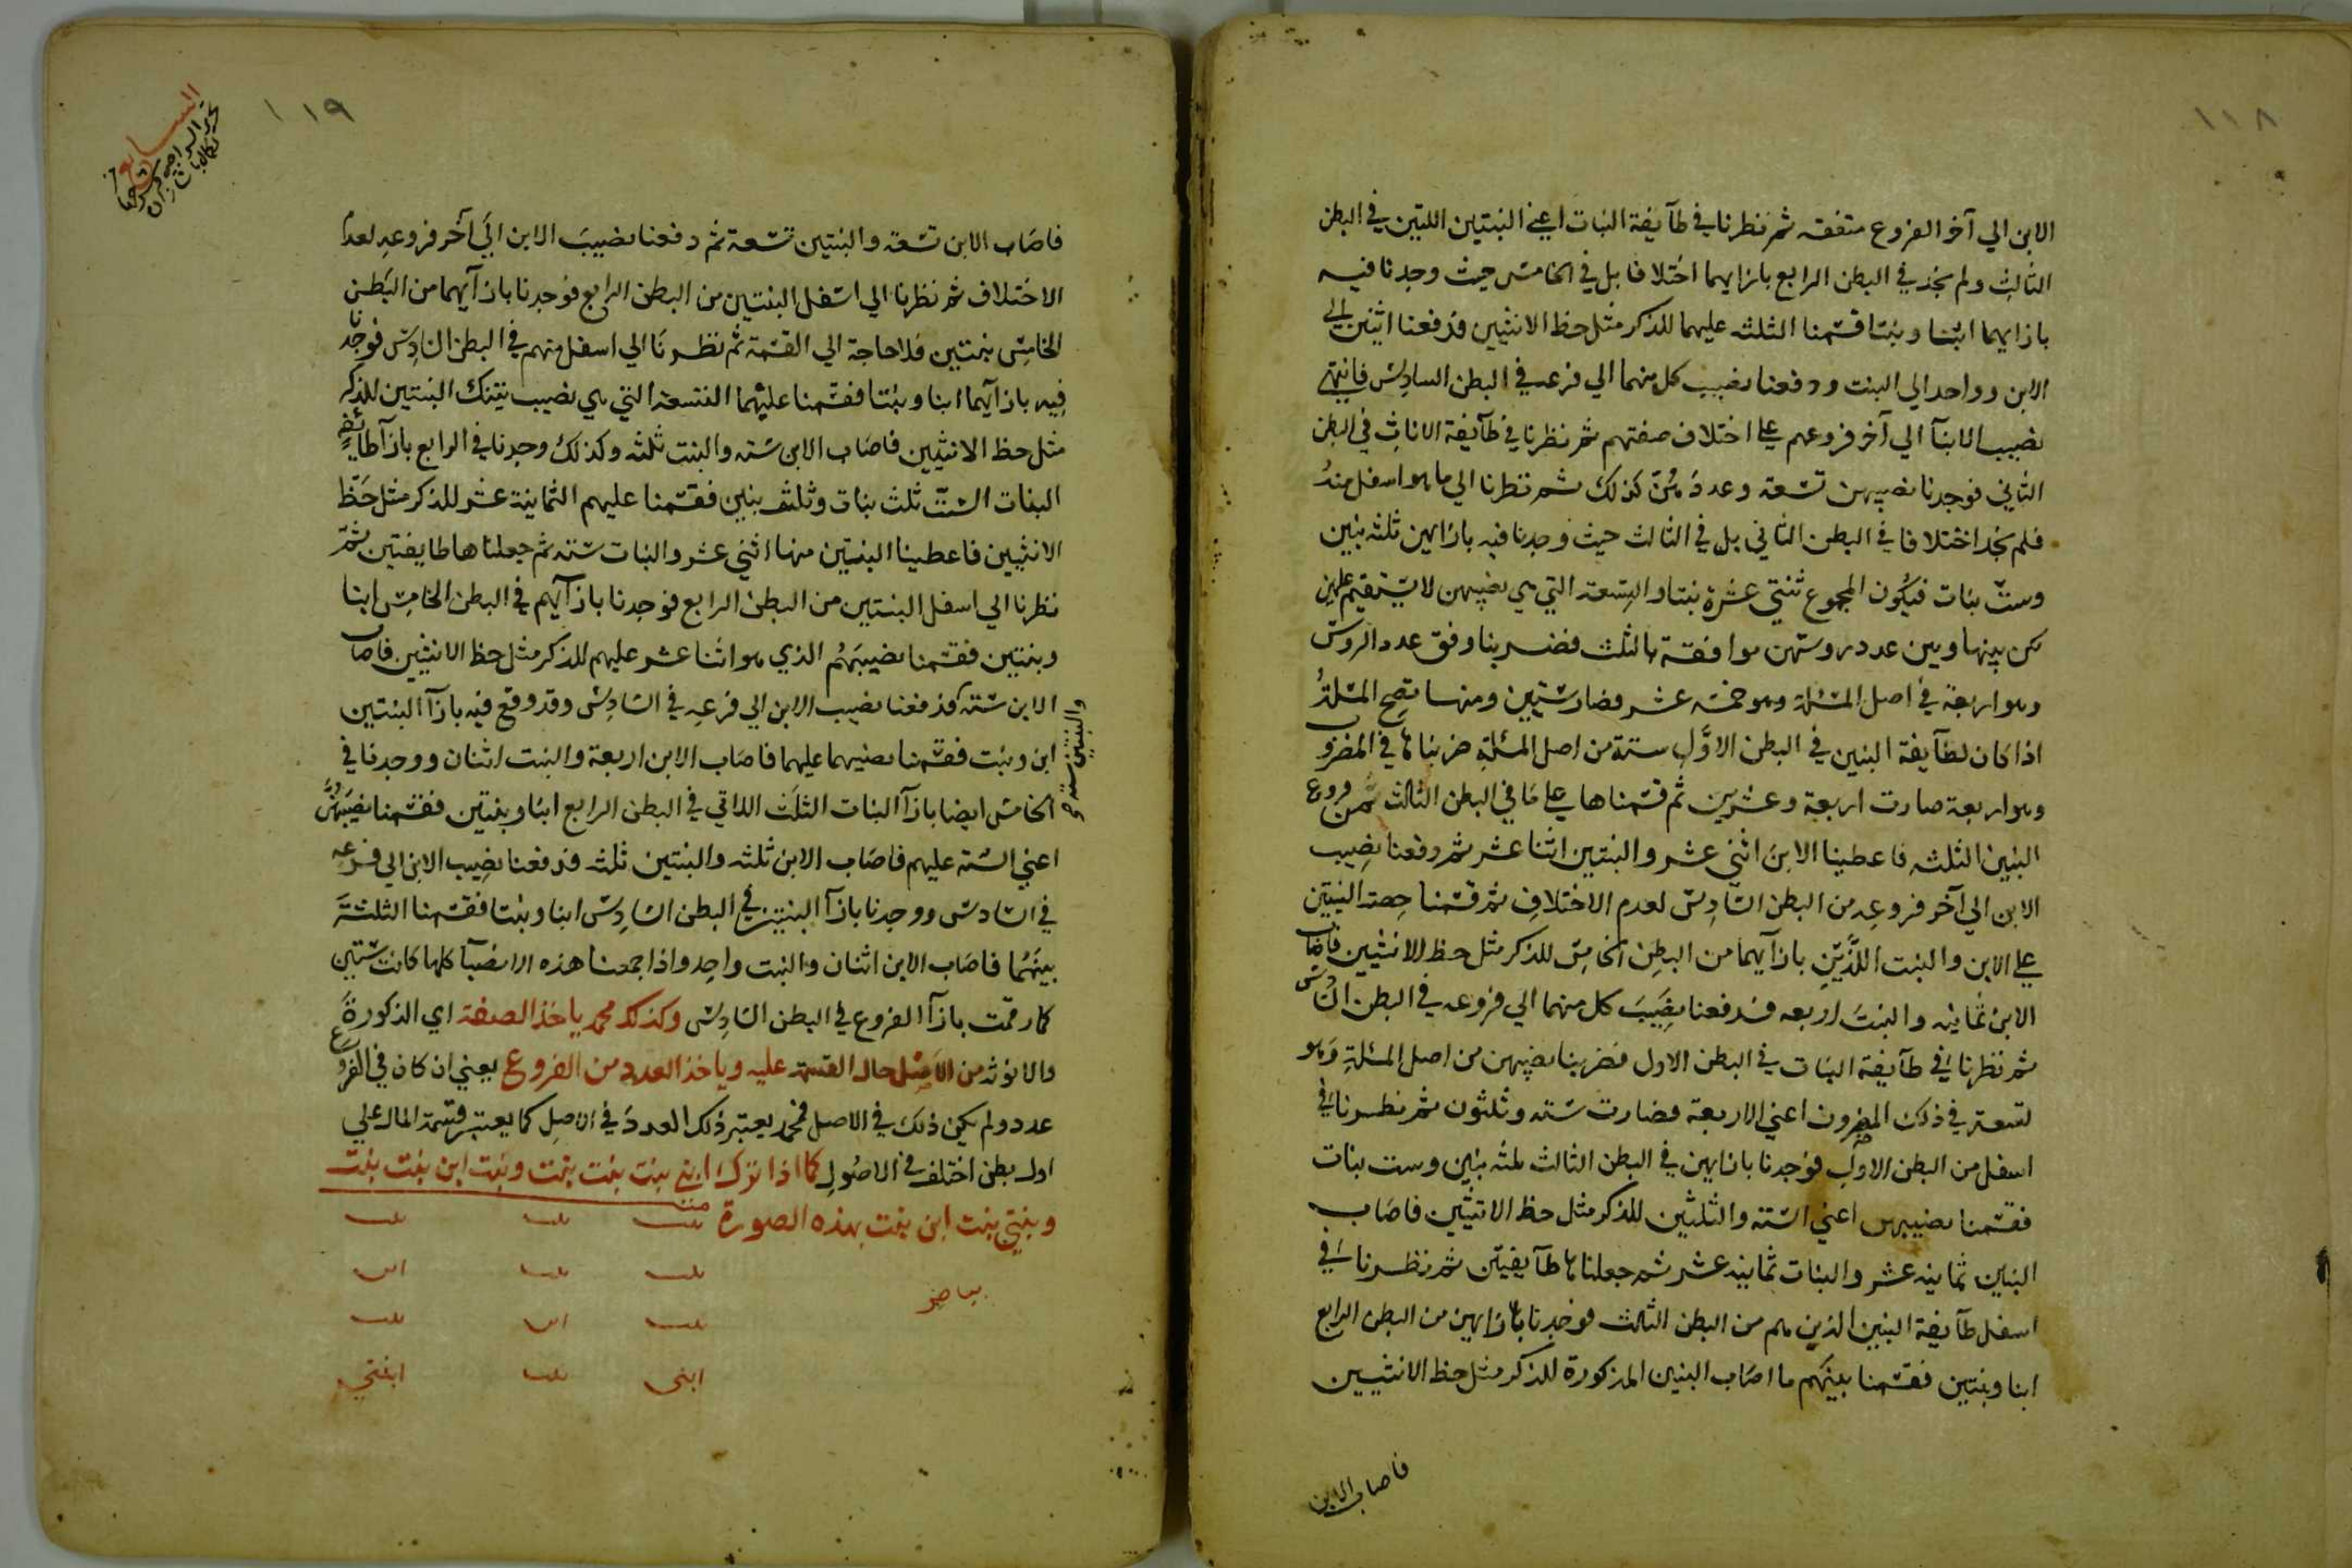 ١١٨
الابن الي آخر الفروع متفقه ثم نظرنا في طآيفة البنات اعني البنتين اللتين في البطن
الثالثِ ولم نجد في البطن الرابع بازايهما اختلافا بل في الخامس حيث وجدنا فيه
بازايهما ابنا وبنتا قسّمنا الثلثه عليهما للذكر مثل حظ الانثيين فدفعنا اثنين الي
الابن وواحد الي البنت ودفعنا نصيب كل منهما الي فرعه في البطن السادس فانتهي
نصيب الابنآ الي آخر فروعهم علي اختلاف صفتهم ثم نظرنا في طآيفة الاناثِ في البطن
الثاني فوجدنا نصيبهن تسعة وعددهُنّ كذلك ثم نظرنا الي ما هو اسفل منهُ
فلم نجد اختلافا في البطن الثاني بل في الثالث حيث وجدنا فيه بازايهن ثلثه بنين
وستّ بنات فيكُون المجموع ثنتي عشرة بنتا والتِسعة التي هي نصيبهن لا يستقيم عليهن
لكن بينها وبين عدد روسهن موافقة بالثلث فضربنا وفق عدد الروس
وهو اربعة في اصل المسئلة وهو خمسة عشر فصار ستين ومنها تصح المسئلةُ
اذا كان لطآيفة البنين في البطن الاوَّل ستة من اصل المسئلة ضربناها في المضروب
وهو اربعة صارت اربعة وعشرين ثم قسّمناها علي مَا في البطن الثالث من فروع
البنين الثلثه فاعطينا الابن اثني عشر والبنتين اثنا عشر ثم دفعنا نصيب
الابن الي آخر فروعه من البطن السّادِس لعدم الاختلافِ ثم قسّمنا حِصة البنتين
علي الابن والبنت اللَّذَيْنِ بازآيهما من البطن الخامِس للذكر مثل حظ الانثيين فاصاب
الابن ثمانيه والبنتَ اربعه فدفعنا نصيبَ كل منهما الي فروعه في البطن السّادس
ثم نظرنا في طآيفة البنات في البطن الاول فضربنا نصيبهن من اصل المسئلةِ وهو
تسعة في ذلك المضروب اعني الاربعة فصارت ستة وثلثون ثم نظرنا في
اسفل من البطن الاول فوجدنا بازايهن في البطن الثالث ثلثه بنين وست بنات
فقسّمنا نصيبهن اعني الستة والثلثين للذكر مثل حظ الانثيين فاصَاب
البنين ثمانيه عشر والبنات ثمانيه عشر ثم جعلناها طآيفتين ثم نظرنا في
اسفل طآيفة البنين الذين هم من البطن الثالث فوجدنا بازايهن من البطن الرابع
ابنا وبنتين فقسّمنا بينَهم ما اصَاب البنين المذكورة للذكر مثل حظ الانثيين
فاصاب الابن
١١٩
السابع
فاصَاب الابن تسعَة والبنتين تسعة ثم دفعنا نصيبَ الابن الي آخر فروعهِ لعدم
الاختلاف ثم نظرنا الي اسفل البنتين من البطن الرابع فوجدنا بازآيهما من البَطن
الخامِس بنتين فلا حاجة الي القسمة ثم نظرنا الي اسفل منهم في البطن السّادِس فوجدنا
فِيه بازآيهما ابنا وبنتا فقسّمنا عليهما التسعة التي هي نصيب تينك البنتين للذكر
مثل حظ الانثيين فاصَاب الابن ستة والبنت ثلثه وكذلك وجدنا في الرابع بازآ طائفة
البنات الستّ ثلث بنات وثلثه بنين فقسّمنا عليهم الثمانية عشر للذكر مثل حَظّ
الانثيين فاعطينا البنين منها اثني عشر والبنات ستة ثم جعلناها طايفتين ثمّ
نظرنا الي اسفل البنين من البطن الرابع فوجدنا بازآيهم في البطن الخامِس ابنا
وبنتين فقسّمنا نصيبَهُم الذي هو اثنا عشر عليهم للذكر مثل حظ الانثيين فاصَاب
الابن ستة فدفعنا نصيب الابن الي فرعِه في السّادِس وقد وقع فيه بازآ البنتين
والبنتين ستة و
ابن وبنت فقسّمنا نصيبهما عليهما فاصَاب الابن اربعة والبنت اثنان ووجدنا في
الخامس ايضا بازآ البنات الثلَث اللاتي في البطن الرابع ابنا وبنتين فقسّمنا نصيبَهُنَّ
اعني الستّة عليهم فاصَاب الابن ثلثه والبنتين ثلثه فدفعنا نصِيب الابن الي فرعه
في السّادس ووجدنا بازآ البنتين في البطن السّادِس ابنا وبنتا فقسّمنا الثلثة
بينَهُما فاصَاب الابن اثنان والبنت واحِد واذا جمعنا هذه الانصبآ كلها كانت ستين
كما رقمت بازآ الفروع في البطن السّادِس وكذلك محمد ياخذ الصفة اي الذكورة
والانوثة من الاصْل حال القسمة عليه وياخذ العدد من الفروع يعني ان كان في الفروع
عدد ولم يكن ذلك في الاصل فمحمد يعتبر ذلك العددَ في الاصل كما يعتبر قسمة المال علي
اول بطن اختلف في الاصُولِ كما اذا ترك ابني بنت بنت بنت وبنت ابن بنت بنت
وبنتي بنت ابن بنت بهذه الصورة
بنت بنت بنت
بنت بنت ابن
بنت ابن بنت
ابني بنت ابنتي
بياض